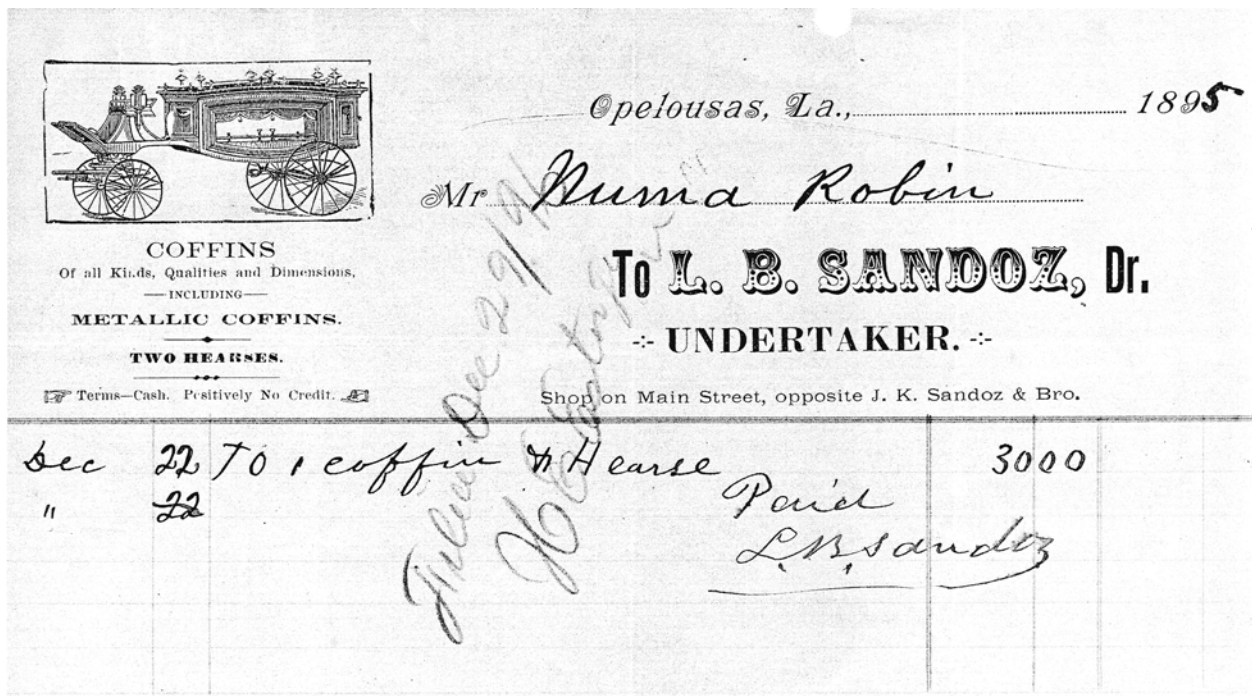 COFFINS
Of all Kinds, Qualities and Dimensions,
INCLUDING
METALLIC COFFINS.
TWO HEARSES.
Terms—Cash. Positively No Credit.
Opelousas, La., 1895
Mr Numa Robin
To L. B. SANDOZ, Dr.
UNDERTAKER.
Shop on Main Street, opposite J. K. Sandoz & Bro.
Dec 22 To 1 coffin & Hearse 3000
" 22
Paid
L. B. Sandoz
Filed Dec 29/96